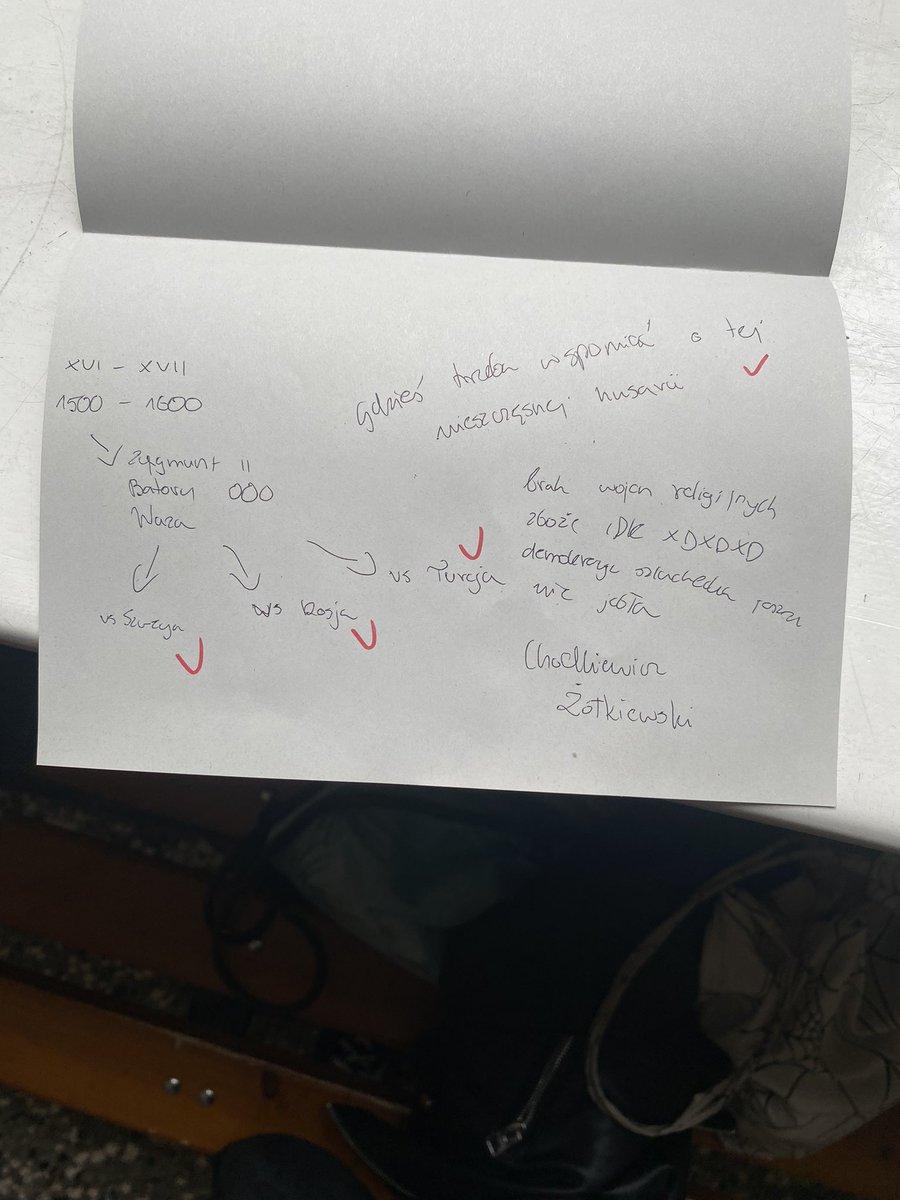 XVI - XVII
1500 - 1600
Zygmunt II
Batory
Waza
vs Szwecja
vs Rosja
vs Turcja
gdzieś trzeba wspomnieć o tej
nieszczęsnej husarii
brak wojen religijnych
zboże IDK XDXDXD
demokracja szlachecka
niż
Chodkiewicz
Żółkiewski